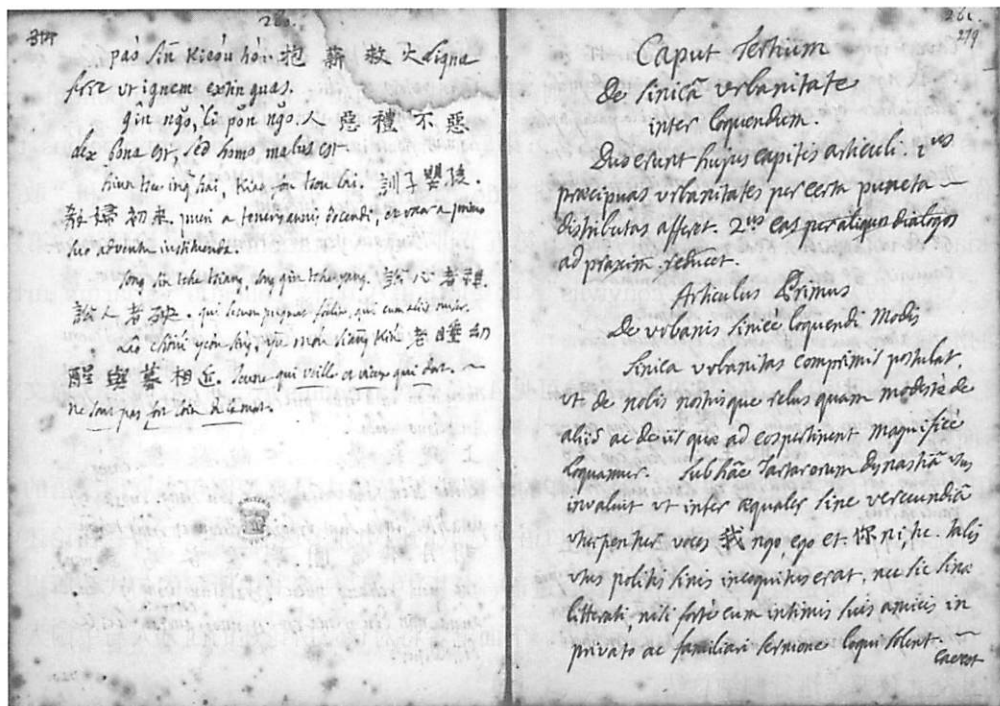 260.
páo sīn kieóu hò. 抱 薪 救 火 ligna
ferre ut ignem extinguas.
gîn ngǒ, lì pǒn ngǒ. 人 惡 禮 不 惡
lex bona est, sed homo malus est
訓 子 嬰 孩.
敎 婦 初 來. pueri a teneris annis docendi, et uxor a primo
suo adventu instituenda.
訟 心 者 祥.
訟 人 者 殃. qui secum pugnat felix, qui cum aliis miser.
老 睡 幼
醒 與 墓 相 近. Jeune qui veille et vieux qui dort.
ne sont pas fort loin de la mort.
261.
219
Caput tertium
De Sinicâ urbanitate
inter loquendum.
Duo erunt hujus capitis articuli. 1us
praecipuas urbanitates per certa puncta
distributas afferet. 2us eas per aliquos dialogos
ad praxim reducet.
Articulus Primus
De urbanis sinice loquendi Modis
Sinica urbanitas comprimis postulat,
ut de nobis nostrisque rebus quam modeste de
aliis ac de iis quae ad eos pertinent magnifice
loquamur. Sub hâc Tartarorum dynastiâ usus
invaluit ut inter aequales sine verecundiâ
usurpentur voces 我 ngo, ego et 你 ni, tu. talis
usus politis sinis incognitus erat, nec sic sinae
litterati nisi forte cum intimis suis amicis in
privato ac familiari sermone loqui solent.